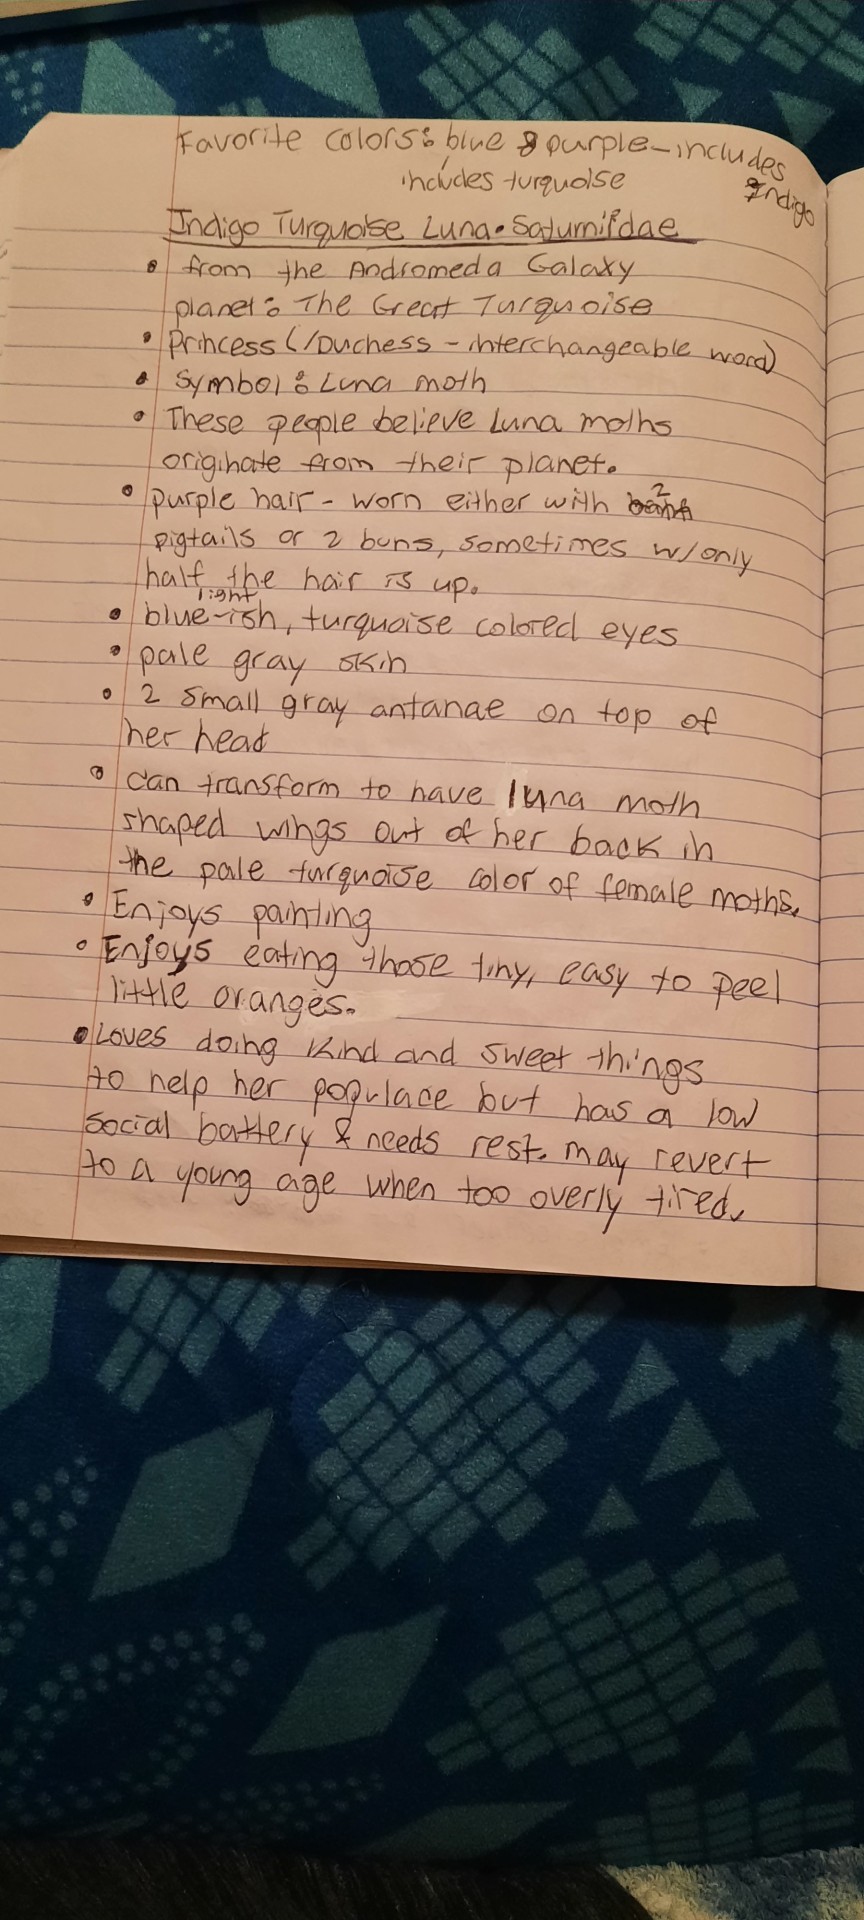 Favorite colors: blue & purple - includes
includes turquoise
Indigo
Indigo Turquoise Luna • Saturniidae
• from the Andromeda Galaxy
planet: The Great Turquoise
• Princess (/Duchess - interchangeable word)
• Symbol: Luna moth
• These people believe Luna moths
originate from their planet.
• purple hair - worn either with 2
pigtails or 2 buns, sometimes w/only
half the hair is up.
light
• blue-ish, turquoise colored eyes
• pale gray skin
• 2 small gray antanae on top of
her head
• can transform to have luna moth
shaped wings out of her back in
the pale turquoise color of female moths.
• Enjoys painting
• Enjoys eating those tiny, easy to peel
little oranges.
• Loves doing kind and sweet things
to help her populace but has a low
social battery & needs rest. may revert
to a young age when too overly tired.